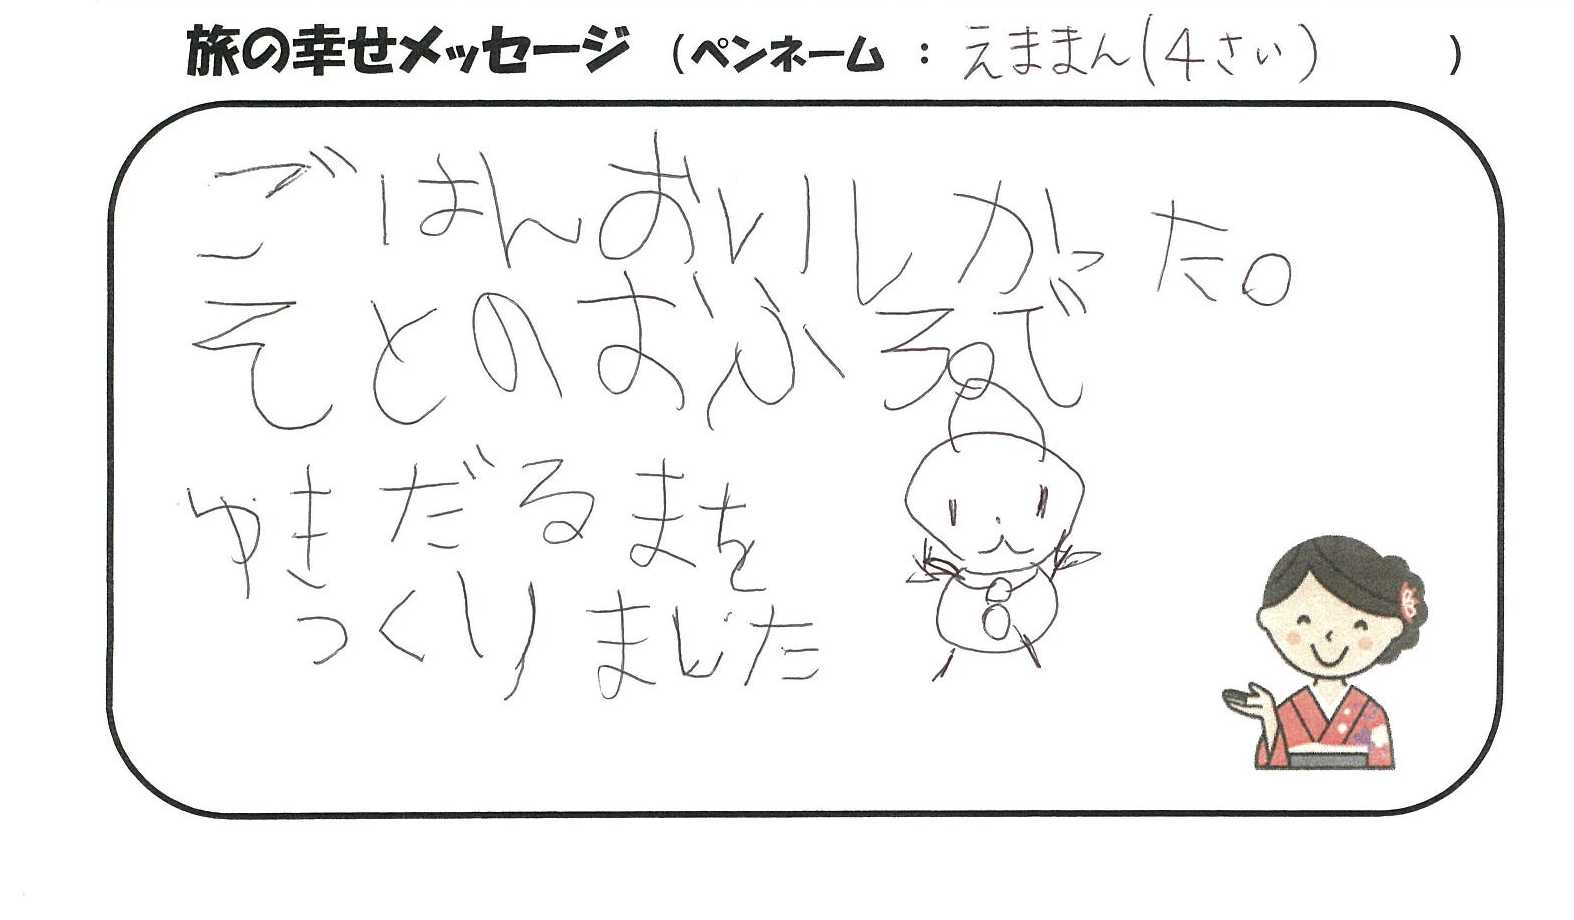 旅の幸せメッセージ (ペンネーム : えままん(4さい) )
ごはんおいしかった。
そとのおふろで
ゆきだるまを
つくりました